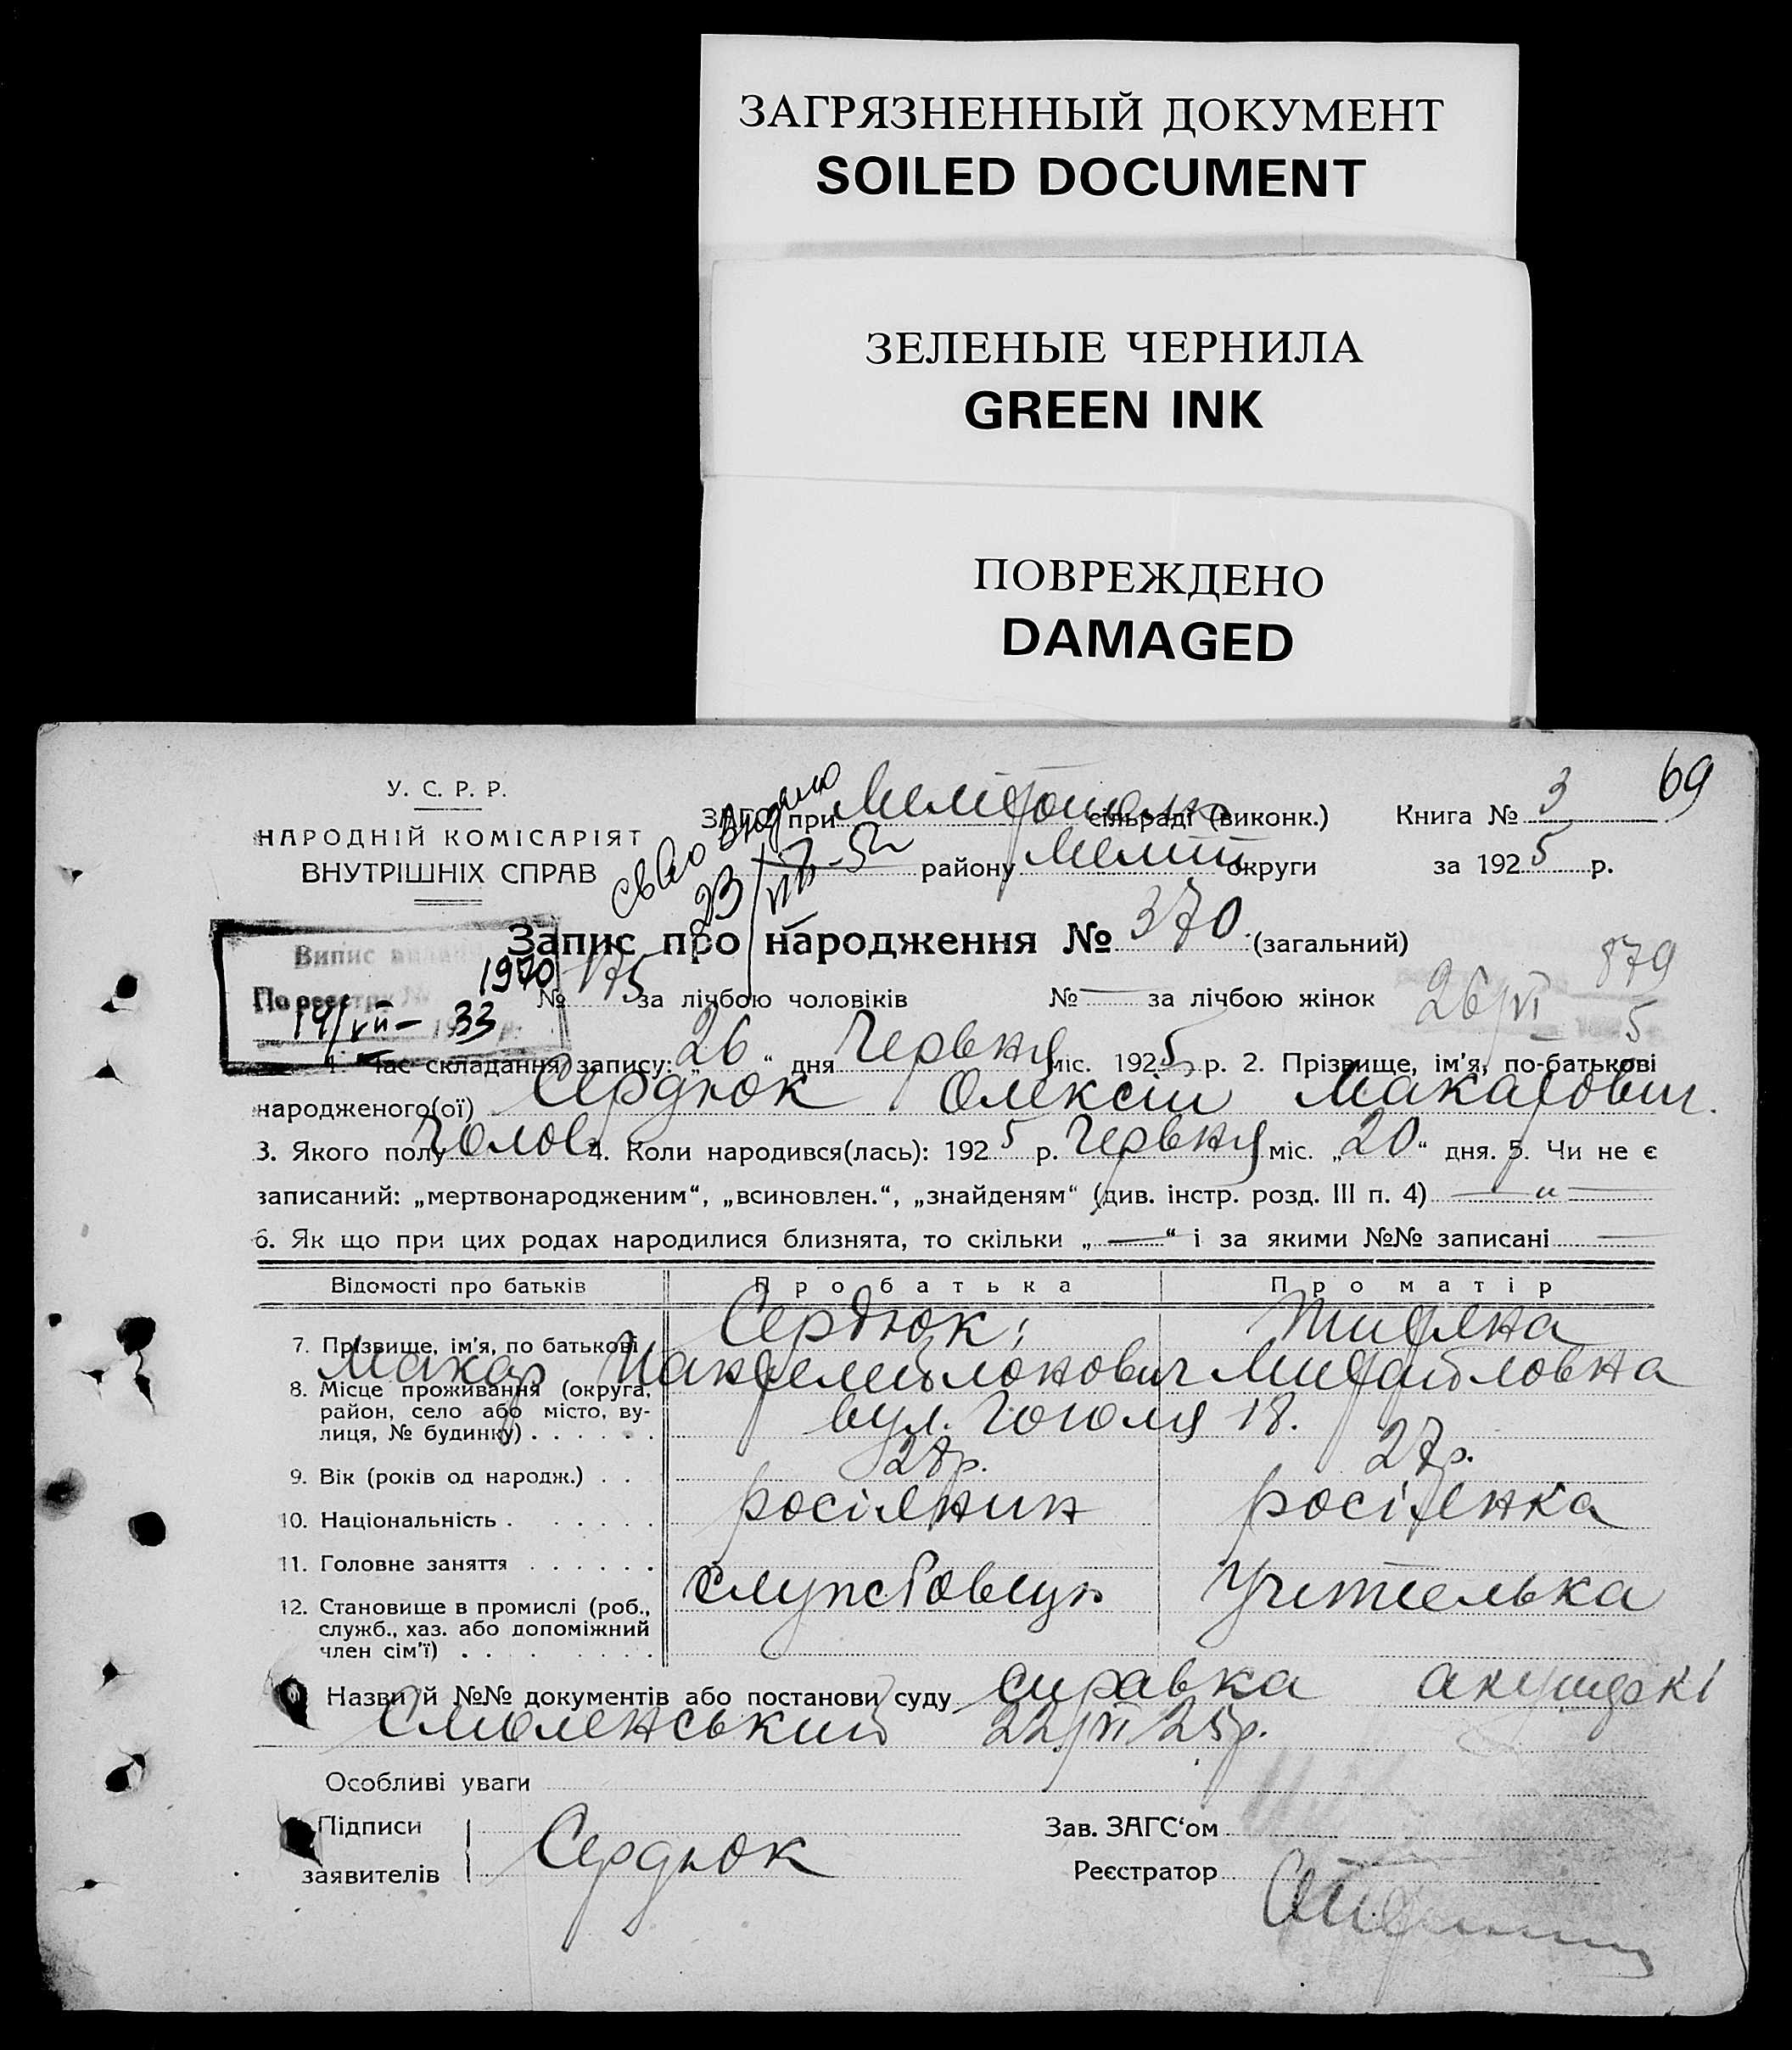 ЗАГРЯЗНЕННЫЙ ДОКУМЕНТ
SOILED DOCUMENT
ЗЕЛЕНЫЕ ЧЕРНИЛА
GREEN INK
ПОВРЕЖДЕНО
DAMAGED
69
У. С. Р. Р.
НАРОДНІЙ КОМІСАРІЯТ
ВНУТРІШНІХ СПРАВ
ЗАГС при сільраді (виконк.) Книга № 3
району Меліт округи за 1925 р.
св-во выдано
23/VII-52
Запис про народження № 370 (загальний)
Випис видано
По реєстру № 1970
14/VII- 1933 р.
№ 175 за лічбою чоловіків № — за лічбою жінок
879
26/VI 5
1. Час складання запису: „26“ дня Червня міс. 1925 р. 2. Прізвище, ім'я, по-батькові
народженого(ої) Сердюк Олексій Макарович.
3. Якого полу Чолов. 4. Коли народився(лась): 1925 р. Червня міс. „20“ дня. 5. Чи не є
записаний: „мертвонародженим“, „всиновлен.“, „знайденям“ (див. інстр. розд. III п. 4) — „ —
6. Як що при цих родах народилися близнята, то скільки „—“ і за якими №№ записані —
Відомості про батьків Про батька Про матір
7. Прізвище, ім'я, по батькові Сердюк;
Макар Пантелеймонович Михайловна
8. Місце проживання (округа,
район, село або місто, ву-
лиця, № будинку) . . . . . . вул. Гоголя 18.
9. Вік (років од народж.) . . 28р. 27р.
10. Національність . . . . . . росіянин росіянка
11. Головне заняття . . . . . .
12. Становище в промислі (роб., службовець Учителька
служб., хаз. або допоміжний
член сім'ї) . . . . . . . .
Назви й №№ документів або постанови суду справка акушеркі
Смоленський 22/VI 25р.
Особливі уваги
Підписи
заявителів Сердюк
Зав. ЗАГС'ом
Реєстратор